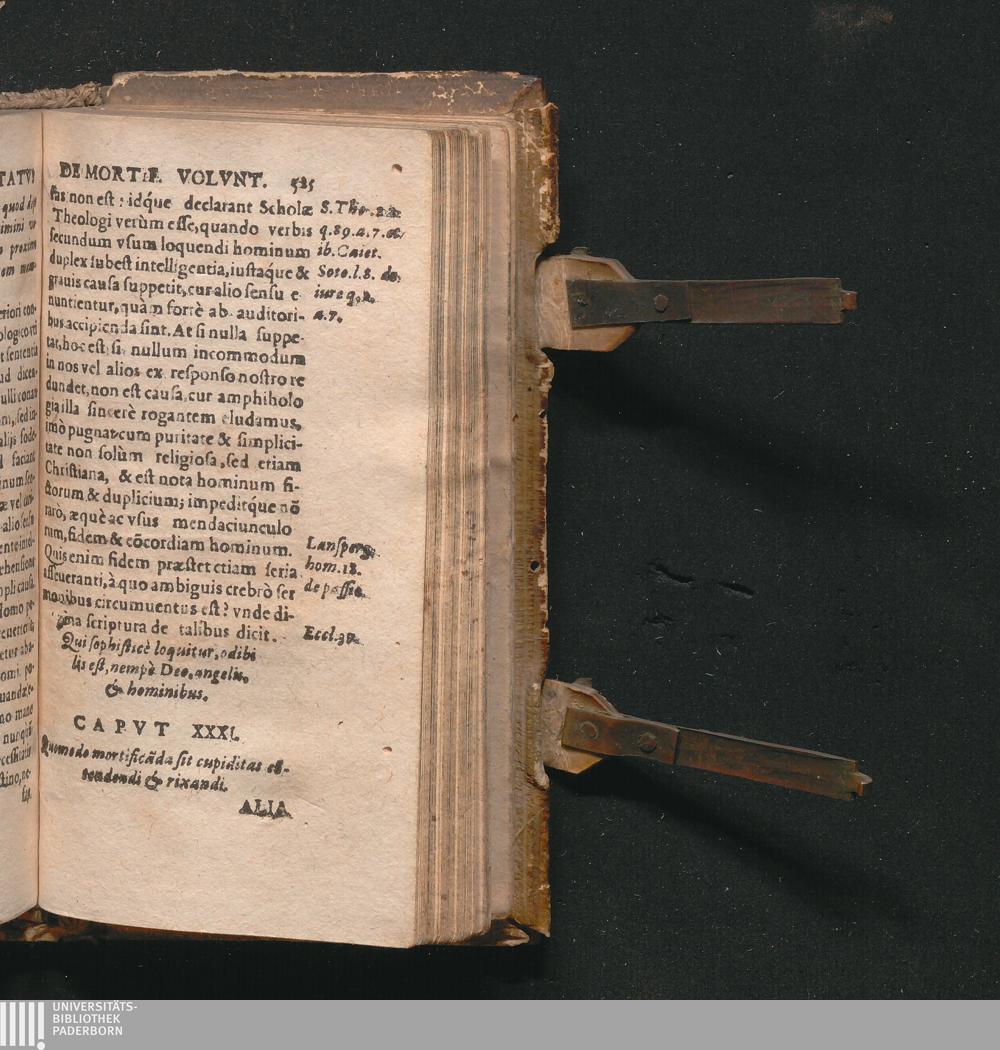 DE MORTIF. VOLVNT. 525
fas non est: idque declarant Scholæ
Theologi verùm esse, quando verbis
secundum vsum loquendi hominum
duplex subest intelligentia, iustáque &
grauis causa suppetit, cur alio sensu e
nuntientur, quàm fortè ab auditori-
bus accipienda sint. At si nulla suppe-
tat, hoc est, si nullum incommodum
in nos vel alios ex responso nostro re
dundet, non est causa, cur amphibolo
gia illa sincerè rogantem eludamus,
imò pugnat cum puritate & simplici-
tate non solùm religiosa, sed etiam
Christiana, & est nota hominum fi-
ctorum & duplicium; impeditq́ue nō
rarò, æquè ac vsus mendaciunculo
rum, fidem & cōcordiam hominum.
Quis enim fidem præstet etiam seria
asseueranti, à quo ambiguis crebrò ser
monibus circumuentus est? vnde di-
uina scriptura de talibus dicit.
Qui sophisticè loquitur, odibi
lis est, nempè Deo, angelis,
& hominibus.
S. Tho. 2.2.
q. 89. a. 7. &
ib. Caiet.
Soto. l. 8. de
iure q. 1.
a. 7.
Lansperg.
hom. 18.
de passio.
Eccl. 37.
CAPVT XXXI.
Quomodo mortificāda sit cupiditas cō-
tendendi & rixandi.
ALIA
UNIVERSITÄTS-
BIBLIOTHEK
PADERBORN